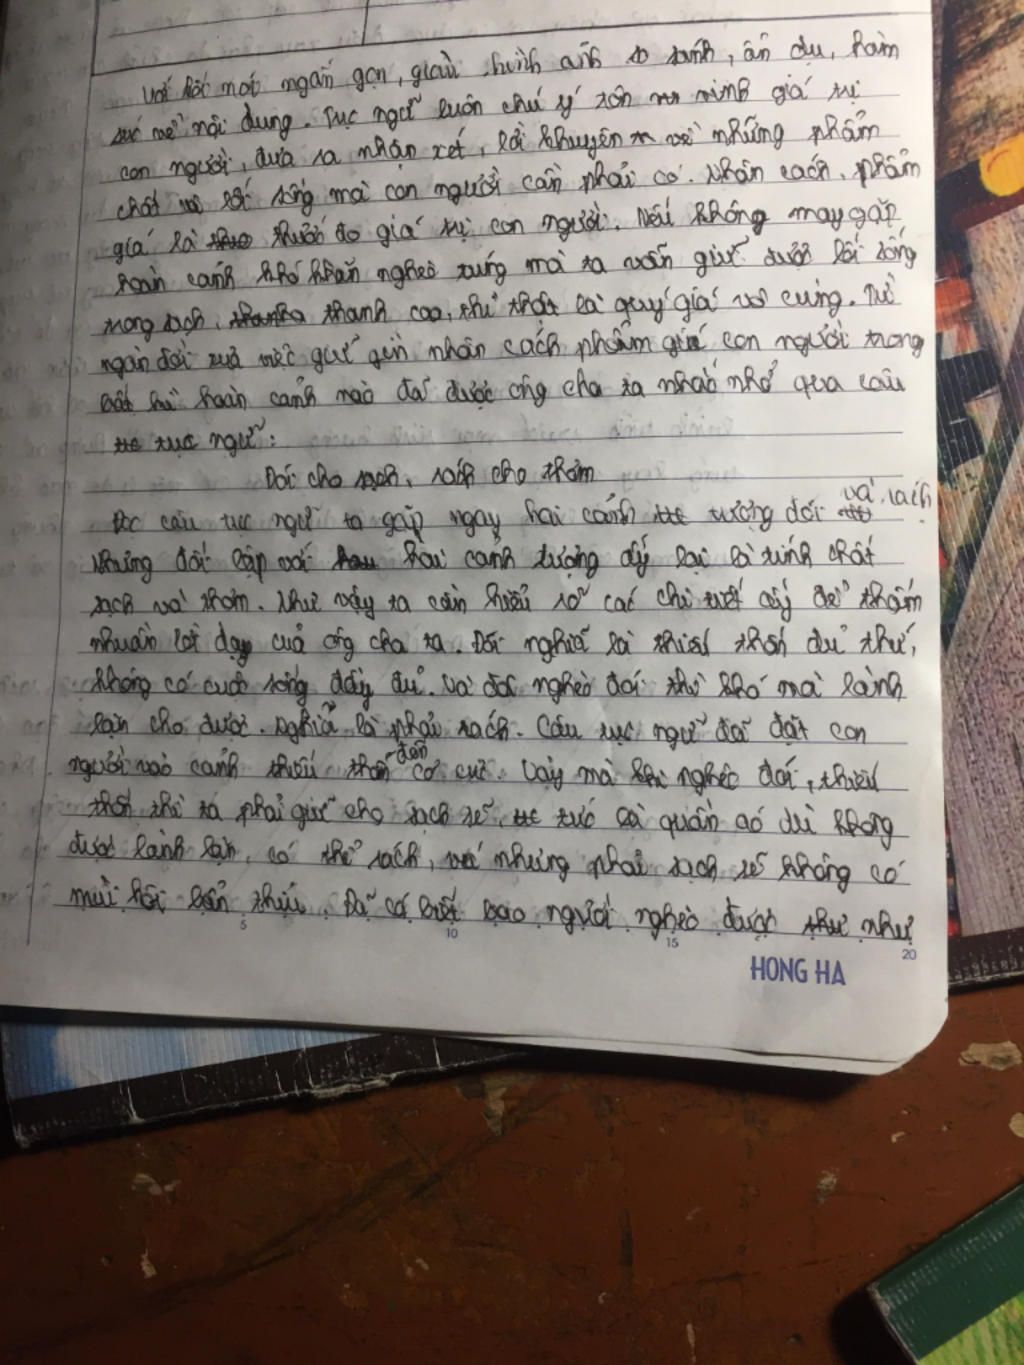 với lối nói ngắn gọn, giàu hình ảnh so sánh, ẩn dụ, hàm
súc về nội dung. Tục ngữ luôn chú ý tôn vinh giá trị
con người, đưa ra nhận xét, lời khuyên về những phẩm
chất và lối sống mà con người cần phải có. Nhân cách, phẩm
giá là thước đo giá trị con người. Nếu không may gặp
hoàn cảnh khó khăn nghèo túng mà ta vẫn giữ được lối sống
trong sạch, thanh cao, thì thật là quý giá vô cùng. Từ
ngàn đời xưa việc giữ gìn nhân cách phẩm giá con người trong
bất kì hoàn cảnh nào đã được ông cha ta nhắc nhở qua câu
tục ngữ:
Đói cho sạch, rách cho thơm
Đọc câu tục ngữ ta gặp ngay hai cảnh tượng đói và rách
Nhưng đối lập với hai cảnh tượng ấy lại là tính chất
sạch và thơm. Như vậy ta cần hiểu rõ các chi tiết ấy để thấm
nhuần lời dạy của ông cha ta. Đói nghĩa là thiếu thốn đủ thứ,
không có cuộc sống đầy đủ. Và đói nghèo đói thì khó mà lành
lặn cho được. Nghĩa là phải rách. Câu tục ngữ đã đặt con
người vào cảnh thiếu thốn đến cơ cực. Vậy mà khi nghèo đói, thiếu
thốn thì ta phải giữ cho sạch sẽ, tức là quần áo dù không
được lành lặn, có thể rách, nhưng phải sạch sẽ không có
mùi hôi bẩn thỉu. Đã có biết bao người nghèo được thư như
5 10 15 20
HONG HA